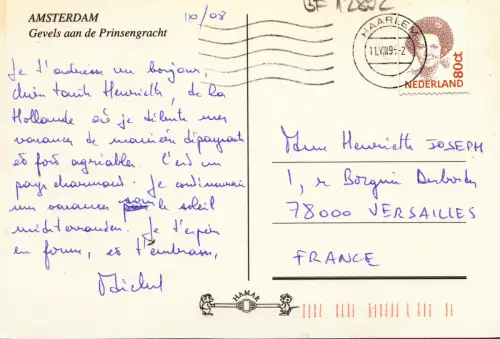 AMSTERDAM
Gevels aan de Prinsengracht
10/08
GF 12802
HAARLEM
NEDERLAND
80ct
Je t'adresse un bonjour,
chère tante Henrieth, de la
Hollande où je débute mes
vacances de manière dépaysante
et fort agréable. C'est un
pays charmant. Je continuerai
mes vacances sous le soleil
méditerranéen. Je t'espère
en forme, et t'embrasse,
Michel
Mme Henrieth JOSEPH
1, r
78000 VERSAILLES
FRANCE
HAMAR